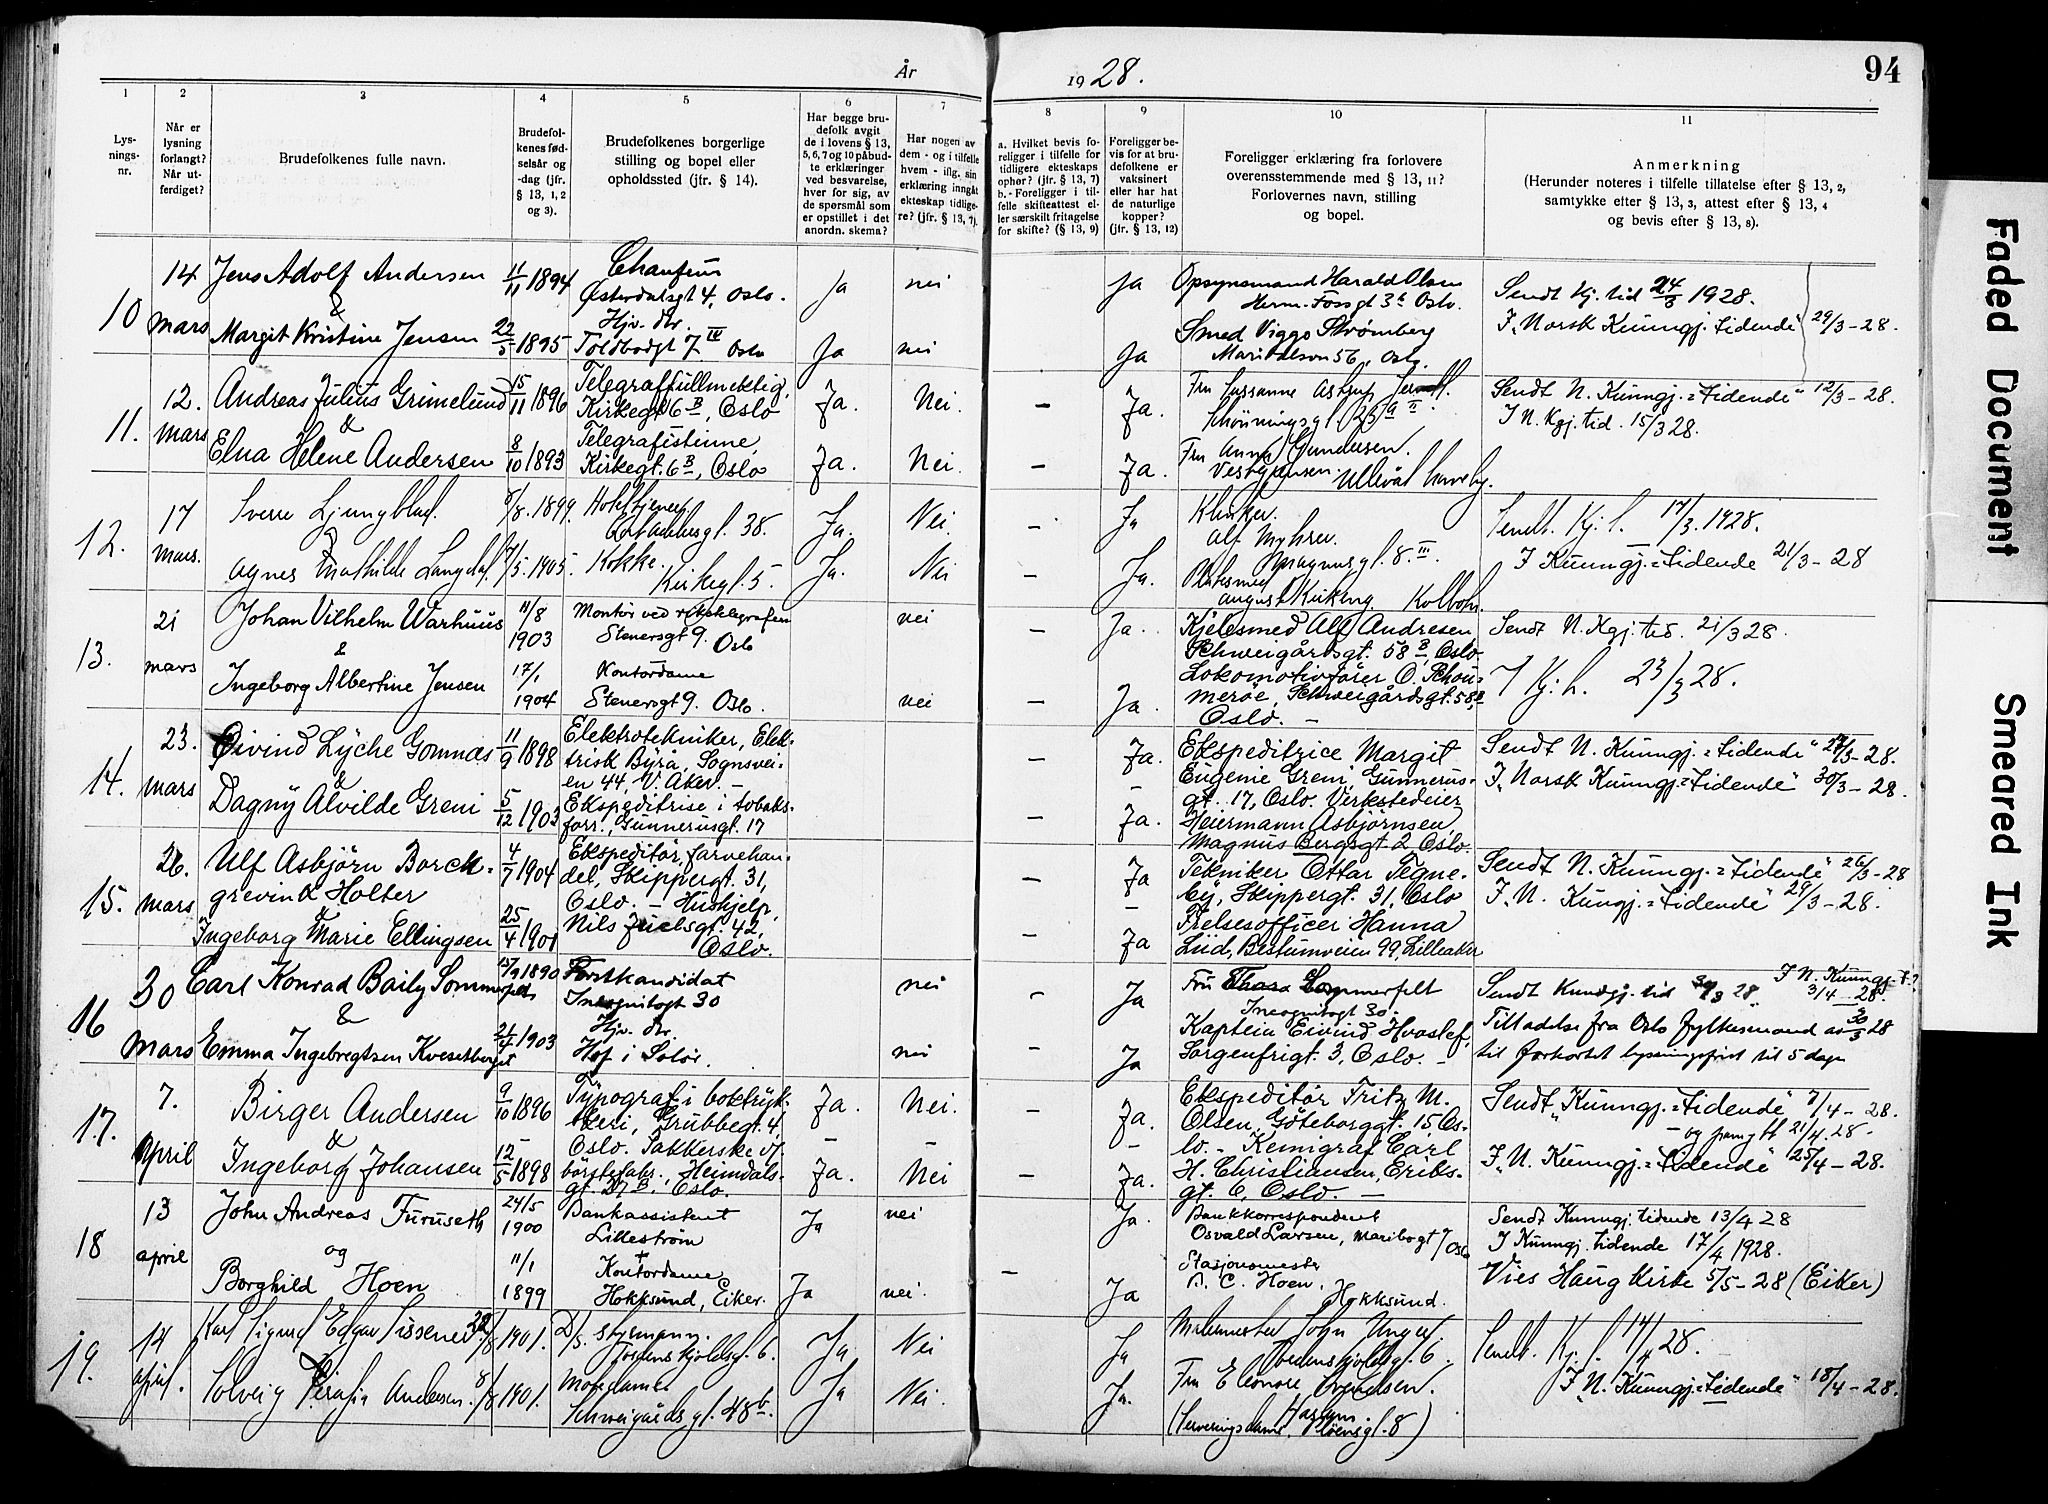 År 1928.
94
1
2
3
4
5
6
7
8
9
10
11
Lys-
nings-
nr.
Når er
lysning
forlangt?
Når ut-
ferdiget?
Brudefolkenes fulle navn.
Brudefol-
kenes fød-
selsår og
-dag (jfr.
§ 13, 1, 2
og 3).
Brudefolkenes borgerlige
stilling og bopel eller
opholdssted (jfr. § 14).
Har begge bru-
defolk avgit
de i lovens § 13,
5, 6, 7 og 10 påbud-
te erklæringer
ved besvarelse,
hver for sig, av
de spørsmål som
er opstillet i det
anordn. skema?
Har nogen av
dem - og i tilfelle
hvem - iflg. sin
erklæring inngåt
ekteskap tidlige-
re? (jfr. § 13, 7).
a. Hvilket bevis fo-
religger i tilfelle for
tidligere ekteskaps
ophør? (jfr. § 13, 7)
b. - Foreligger i til-
felle skifteattest el-
ler særskilt fritagelse
for skifte? (§ 13, 9)
Foreligger be-
vis for at bru-
defolkene er
vaksinert
eller har hat
de naturlige
kopper?
(jfr. § 13, 12)
Foreligger erklæring fra forlovere
overensstemmende med § 13, 11?
Forlovernes navn, stilling
og bopel.
Anmerkning
(Herunder noteres i tilfelle tillatelse efter § 13, 2,
samtykke efter § 13, 3, attest efter § 13, 4
og bevis efter § 13, 8).
10
14
mars
Jens Adolf Andersen
&
Margit Kristine Jensen
11/11 1894
22/5 1895
Chaufeur
Østerdalsgt 4, Oslo.
Hjv. dtr.
Toldbodgt 7 IV Oslo
Ja
Ja
nei
nei
Ja
Ja
Opsynsmand Harald Olsen
Herm. Fossgt 3 Oslo.
Smed Viggo Strømberg
Maridalsvn 56, Oslo
Sendt Kj. tid 24/3 1928.
I „Norsk Kunngj. tidende" 29/3-28.
11.
12.
mars
Andreas Julius Grimelund
&
Elna Helene Andersen
15/11 1896
8/10 1893
Telegraffullmektig,
Kirkegt 6 B, Oslo
Telegrafistinne,
Kirkegt. 6 B, Oslo
Ja.
Ja.
Nei.
Nei.
–
–
Ja.
Ja.
Fru Sussanne Astrup
Schøningsgt 25 a II.
Fru Anna Gundersen.
Vestgrensen. Ullevål haveby.
Sendt N. Kunngj.=tidende" 12/3-28.
I N. Kgj. tid. 15/3 28.
12.
17
mars.
Sverre Ljungblad.
&
Agnes Mathilde Langdal.
/8. 1899.
/5. 1905.
38.
Kokke.
Kirkegt. 5.
Ja.
Ja.
Nei.
Nei
–
–
Ja
Ja.
Alf Myhre.
gt. 8. III.
August Kirkeng. Kolbotn.
Sendt. Kj. t. 17/3. 1928.
I Kunngj.=tidende 21/3-28
13.
21
mars
Johan Vilhelm Warhuus
&
Ingeborg Albertine Jensen
11/8
1903
17/1
1904
Montør ved rikstelegrafen
Stenersgt 9. Oslo
Kontordame
Stenersgt 9. Oslo.
nei
nei
–
–
Ja.
Ja.
Kjelesmed Alf Andresen,
Schweigårdsgt. 58 B, Oslo.
Lokomotivfører O. Schou-
merøe, Schweigårdsgt. 58 B
Oslo. –
Sendt N. Kgj. tid. 21/3 28.
I Kj. t. 23/3 28.
14.
23.
mars
Øivind Lyche Gomnæs
&
Dagny Alvilde Greni
11/9 1898
5/12 1903
Elektrotekniker, Elek-
trisk Byrå, Sognsvei-
en 44, V. Aker. –
Ekspeditrise i tobaks-
forr., Gunnerusgt. 17
–
–
Ja.
–
Ja.
Ekspeditrice Margit
Eugenie Greni, Gunnerus-
gt. 17, Oslo. Verkstedeier
Heiermann Asbjørnsen,
Magnus Bergsgt 2, Oslo.
Sendt N. Kunngj.=tidende" 27/3-28.
I „Norsk Kunngj.=tidende" 30/3-28.
15.
26.
mars
Ulf Asbjørn Borch-
grevink Holter
&
Ingeborg Marie Ellingsen
4/7 1904
25/4 1901
Ekspeditør, farvehan-
del, Skippergt. 31,
Oslo. – Hushjelp,
Nils Juelsgt. 42,
Oslo.
–
–
Ja
–
Ja
Tekniker Ottar Tegne-
by, Skippergt. 31, Oslo
Frelsesofficer Hanna
Lud, Bestumveien 99, Lilleaker
Sendt N. Kunngj.=tidende" 26/3-28
I „N. Kungj.=tidende" 29/3-28.
16
30
mars
Carl Konrad Baily Sommerfelt
&
Emma Ingebregtsen Kvesetberget
1890
21/4 1903
Forstkandidat
Incognitogt 30
Hjv. dtr.
Hof i Solør.
nei
nei
–
–
Ja
Ja
Fru Thora Sommerfelt
Incognitogt 30.
Kaptein Eivind Hvoslef,
Sorgenfrigt. 3, Oslo. –
Sendt Kundgj. tid 30/3 28.
I N. Kunngj. t.?
3/4 28.
Tilladelse fra Oslo fylkesmand av 30/3 28
til forkortet lysningsfrist til 5 dage
17.
7.
April
Birger Andersen
&
Ingeborg Johansen
9/10 1896
12/5 1898
Typograf i boktryk-
keri, Grubbegt. 4,
Oslo. Sakkerske v/
børstefabr., Heimdals-
gt. 27 B. Oslo.
Ja.
–
Ja.
Nei.
–
Nei
–
–
Ja.
–
Ja.
Ekspeditør Fritz M.
Olsen, Göteborggt. 15 Os-
lo. – Kemigraf Carl
H. Christiansen, Eriks-
gt. 6, Oslo. –
Sendt „Kunngj.=tidende" 7/4-28.
– og pånytt 21/4. 28.
I „N. Kunngj.=tidende" 25/4-28.
18
13
april
John Andreas Furuseth
og
Borghild Hoen
24/5
1900
11/1
1899
Bankassistent
Lillestrøm
+
Kontordame
Hokksund, Eiker.
Ja
Ja
nei
nei.
–
Ja.
Ja
Bankkorrespondent
Osvald Larsen, Maribogt 7 Oslo
Stasjonsmester
C. Hoen,
Hokksund.
Sendt Kunngj. tidende 13/4 28
I Kunngj. tidende 17/4 1928.
Vies Haug kirke 5/5-28 (Eiker)
19.
14
april.
Karl Sigurd Edgar Sissener
&
Solveig Serafia Andersen.
22/8 1901.
8/8 1901.
D/s. styrmann.
Tordenskjoldsgt. 6.
Schweigårdsgt. 48 b.
Ja
Ja
Nei
Nei.
Ja
Ja.
Malermester John Unger.
Tordenskjoldsgt. 6.
Fru Eleonore
(Serveringsdame, gt. 8)
Sendt. Kj. t. 14/4 28.
I „N. Kunngj.=tidende" 18/4-28.
Faded Document
Smeared Ink